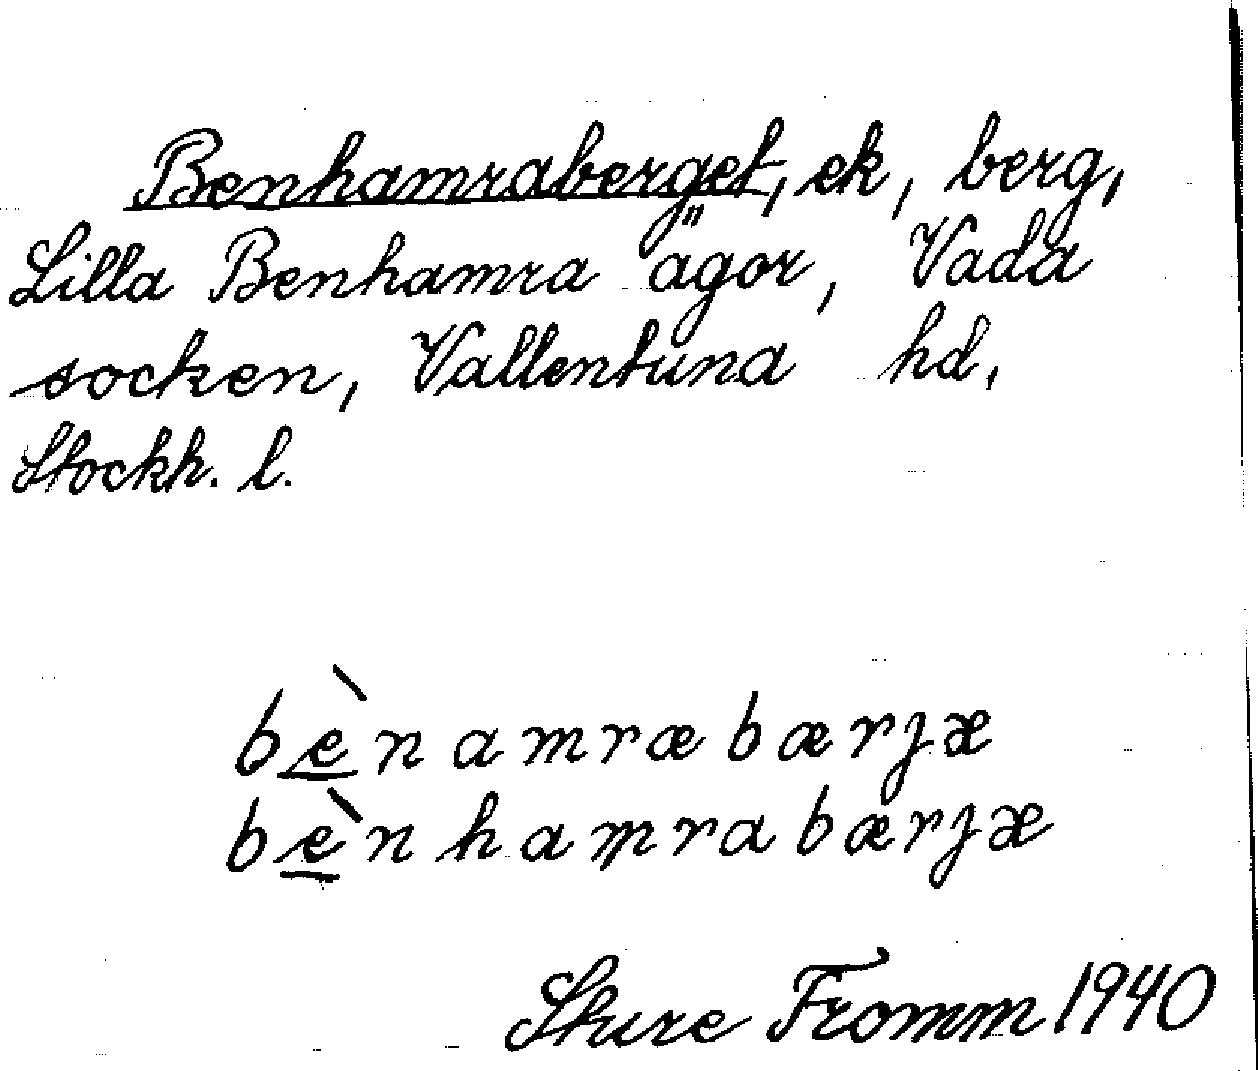 Benhamraberget, ek, berg,
Lilla Benhamra ägor, Vada
socken, Vallentuna hd,
Stockh. l.
bènamræbærjæ
bènhamrabærjæ
Sture Fromm 1940